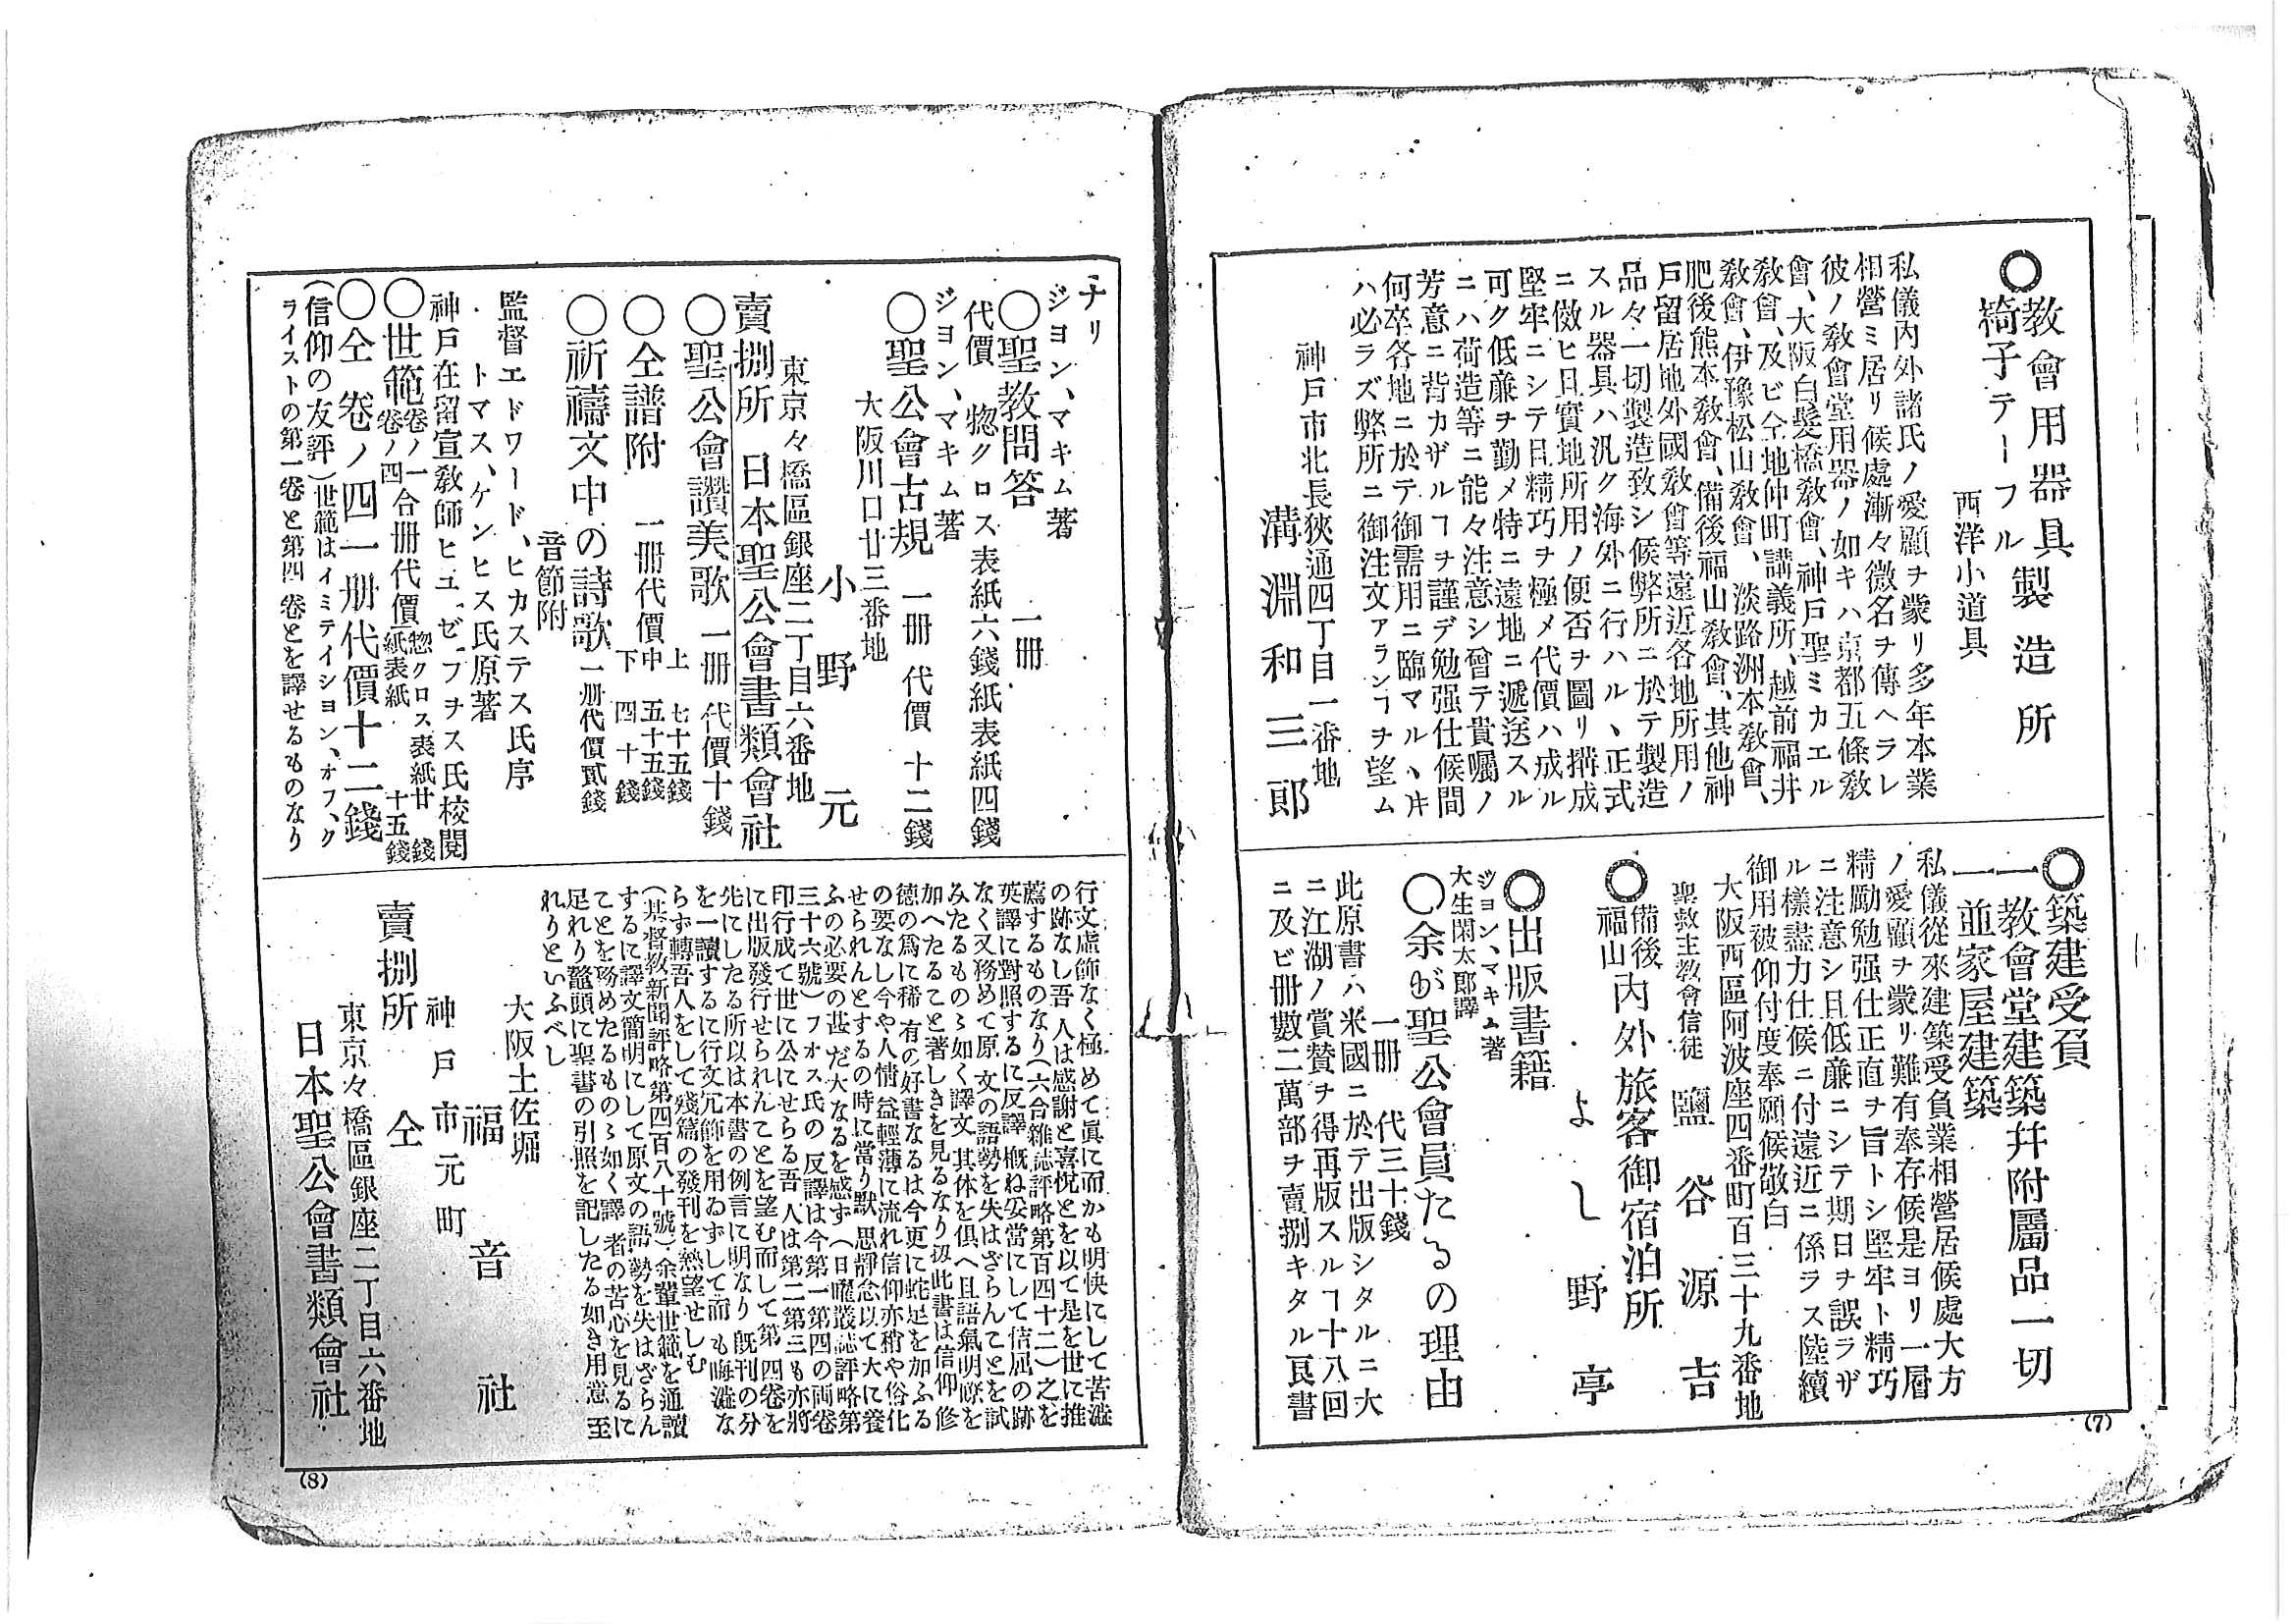 ○教會用器具製造所
椅子テーフル
西洋小道具
私儀内外諸氏ノ愛顧ヲ蒙リ多年本業
相營ミ居リ候處漸々微名ヲ傳ヘラレ
彼ノ敎會堂用器ノ如キハ京都五條敎
會、大阪白髮橋敎會、神戸聖ミカエル
敎會、及ビ仝地仲町講義所、越前福井
敎會、伊豫松山敎會、淡路洲本敎會、
肥後熊本敎會、備後福山敎會、其他神
戸留居地外國敎會等遠近各地所用ノ
品々一切製造致シ候弊所ニ於テ製造
スル器具ハ汎ク海外ニ行ハル、正式
ニ傚ヒ且實地所用ノ便否ヲ圖リ搆成
堅牢ニシテ且精巧ヲ極メ代價ハ成ル
可ク低廉ヲ勤メ特ニ遠地ニ遞送スル
ニハ荷造等ニ能々注意シ曾テ貴囑ノ
芳意ニ背カザルヿヲ謹デ勉强仕候間
何卒各地ニ於テ御需用ニ臨マル、ヰ
ハ必ラズ弊所ニ御注文アランヿヲ望ム
神戸市北長狹通四丁目一番地
溝淵和三郎
○築建受負
一教會堂建築幷附屬品一切
一並家屋建築
私儀從來建築受負業相營居候處大方
ノ愛顧ヲ蒙リ難有奉存候是ヨリ一層
精勵勉强仕正直ヲ旨トシ堅牢ト精巧
ニ注意シ且低廉ニシテ期日ヲ誤ラザ
ル樣盡力仕候ニ付遠近ニ係ラス陸續
御用被仰付度奉願候敬白
大阪西區阿波座四番町百三十九番地
聖救主敎會信徒 鹽谷源吉
○備後福山 内外旅客御宿泊所
よし野亭
○出版書籍
ジヨン、マキム著
大生閑太郎譯
○余が聖公會員たるの理由
一冊 代三十錢
此原書ハ米國ニ於テ出版シタルニ大
ニ江湖ノ賞賛ヲ得再版スルヿ十八回
ニ及ビ冊數二萬部ヲ賣捌キタル良書
(7)
ナリ
ジヨン、マキム著
○聖教問答 一冊
代價 惣クロス表紙六錢紙表紙四錢
ジヨン、マキム著
○聖公會古規 一冊 代價 十二錢
大阪川口廿三番地
小野元
東京々橋區銀座二丁目六番地
賣捌所 日本聖公會書類會社
○聖公會讚美歌 一冊 代價十錢
○仝譜附 一冊代價 上 七十五錢
中 五十五錢
下 四十錢
○祈禱文中の詩歌 一册代價貳錢
音節附
監督エドワード、ヒカステス氏序
トマス、ケンヒス氏原著
神戸在留宣敎師ヒユ、ゼ、フヲス氏校閲
○世範 卷ノ一 卷ノ四 合冊代價 惣クロス表紙廿錢
紙表紙 十五錢
○仝 卷ノ四 一册代價十二錢
(信仰の友評)世範はイミテイシヨン、オフ、ク
ライストの第一卷と第四卷とを譯せるものなり
行文虚飾なく極めて眞に而かも明快にして苦澁
の跡なし吾人は感謝と喜悦とを以て是を世に推
薦するものなり(六合雜誌評略第百四十二)之を
英譯に對照するに反譯槪ね妥當にして佶屈の跡
なく又務めて原文の語勢を失はざらんてとを試
みたるものゝ如く譯文其体を俱へ且語氣明瞭を
加へたること著しきを見るなり扨此書は信仰修
德の爲に稀有の好書なるは今更に蛇足を加ふる
の要なし今や人情益輕薄に流れ信仰亦稍や俗化
せられんとするの時に當り默思靜念以て大に養
ふの必要の甚だ大なるを感ず(日曜叢誌評略第
三十六號)フオス氏の反譯は今第一第四の両卷
印行成て世に公にせらる吾人は第二第三も亦將
に出版發行せられんてとを望む而して第四卷を
先にしたる所以は本書の例言に明なり既刊の分
を一讀するに行文冗飾を用ゐずして而も晦澁な
らず轉吾人をして殘篇の發刊を熱望せしむ
(基督敎新聞評略第四百八十號)余輩世範を通讀
するに譯文簡明にして原文の語勢を失はざらん
てとを務めたるものゝ如く譯者の苦心を見るに
足れり鼇頭に聖書の引照を記したる如き用意至
れりといふべし
大阪土佐堀
福音社
神戸市元町
賣捌所 仝
東京々橋區銀座二丁目六番地
日本聖公會書類會社
(8)